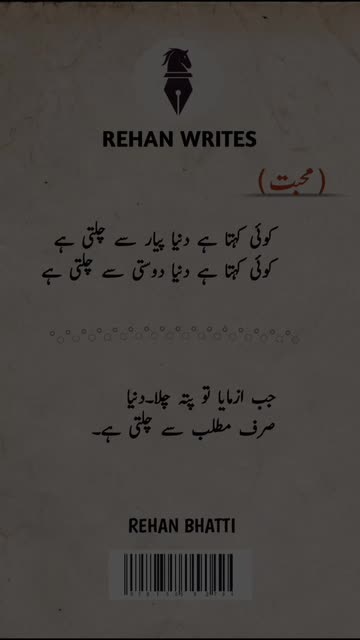 REHAN WRITES
(محبت)
کوئی کہتا ہے دنیا پیار سے چلتی ہے
کوئی کہتا ہے دنیا دوستی سے چلتی ہے
جب ازمایا تو پتہ چلا۔دنیا
صرف مطلب سے چلتی ہے۔
REHAN BHATTI